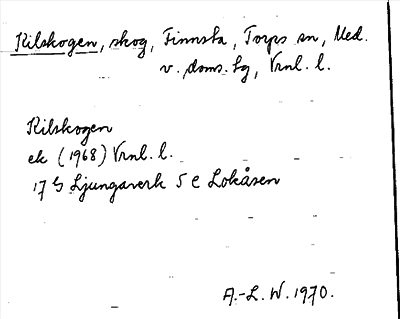 Kilskogen, skog, Finnsta, Torps sn, Med.
v. doms. tg, Vrnl. l.
Kilskogen
ek (1968) Vrnl. l.
17 G Ljungaverk 5 c Lokåsen
A.-L. W. 1970.